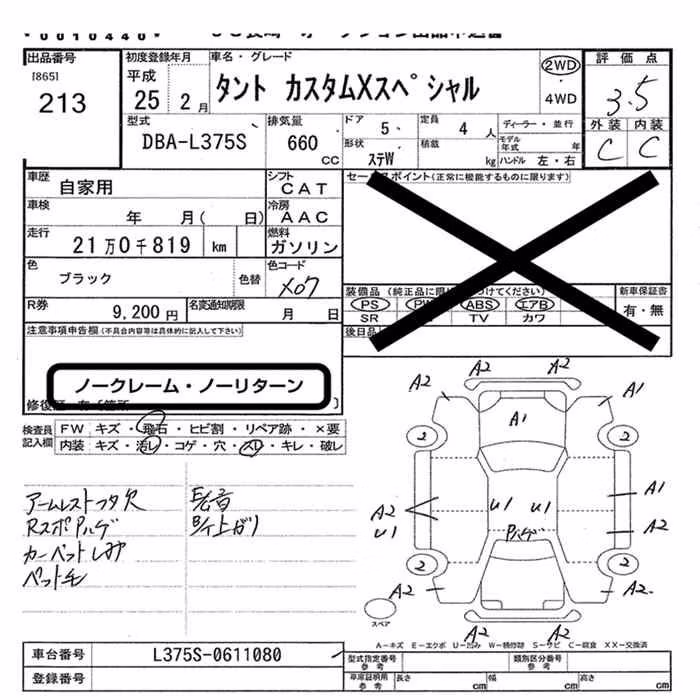 0010440
出品番号
[865]
213
初度登録年月
平成
25 2月
車名・グレード
タント カスタムXスペシャル
2WD
・
4WD
評価点
3.5
外装 内装
C C
型式
DBA-L375S
排気量
660
CC
ドア 5
定員 4人
ディーラー・並行
形状 ステW
積載 kg
モデル年式 年
ハンドル 左・右
車歴
自家用
シフト
CAT
車検
年 月( 日)
冷房
AAC
走行
21万0千819 km
燃料
ガソリン
色
ブラック
色替
色コード
X07
R券
9,200円
名変通知期限
月 日
注意事項申告欄(不具合内容等は具体的に記入して下さい)
ノークレーム・ノーリターン
セールスポイント(正常に機能するものに限ります)
装備品(純正品に限
つけてください)
新車保証書
有・無
PS PW ABS エアB
SR TV カワ
後日品
検査員
記入欄
FW キズ・飛石・ヒビ割・リペア跡・×要
内装 キズ・汚レ・コゲ・穴・スレ・キレ・破レ
アームレストフタ欠
RスポPハゲ
カーペットしみ
ペット毛
A2 A2 A2 A1
A1
2 2
A1
A2 U1 U1 U1 A2
Pハゲ
2 2
A2 A2
A2 A2
スペア
A-キズ E-エクボ U-凹み W-補修跡 S-サビ C-腐食 XX-交換済
車台番号
L375S-0611080
登録番号
型式指定番号
参考
類別区分番号
参考
車庫証明用
参考
長さ cm 幅 cm 高さ cm